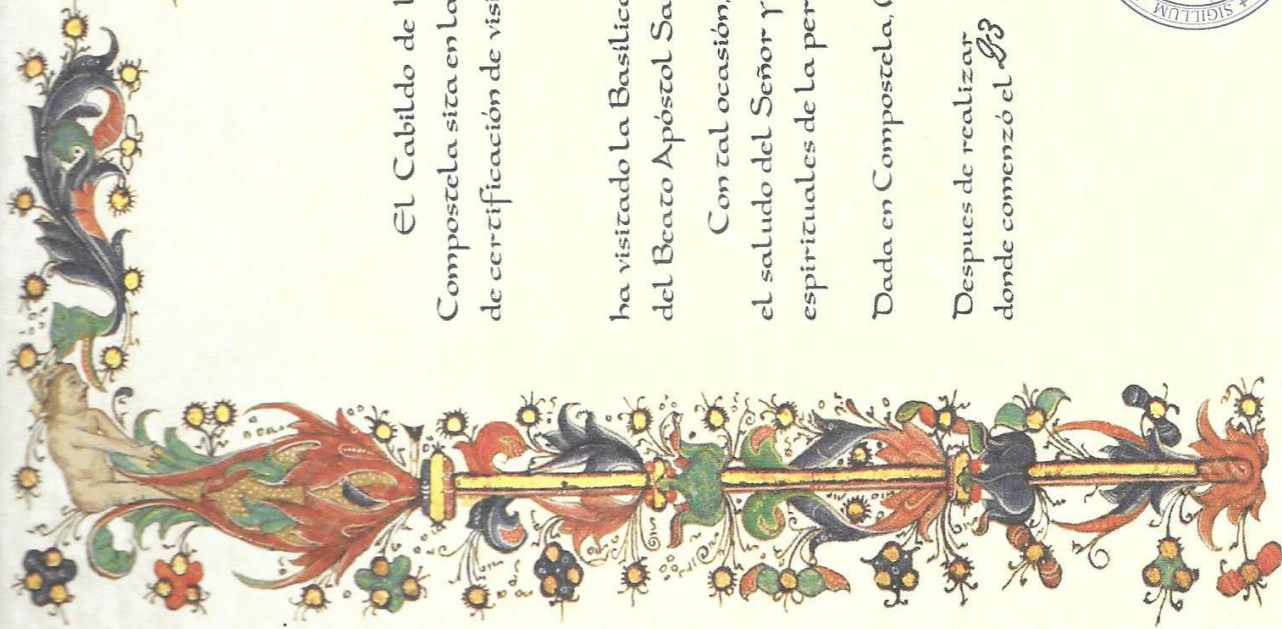 El Cabildo de l
Compostela sita en la
de certificación de visi
ha visitado la Basílic
del Beato Apóstol Sa
Con tal ocasión,
el saludo del Señor y
espirituales de la per
Dada en Compostela,
Despues de realizar
donde comenzó el 23
+ SIGILLUM